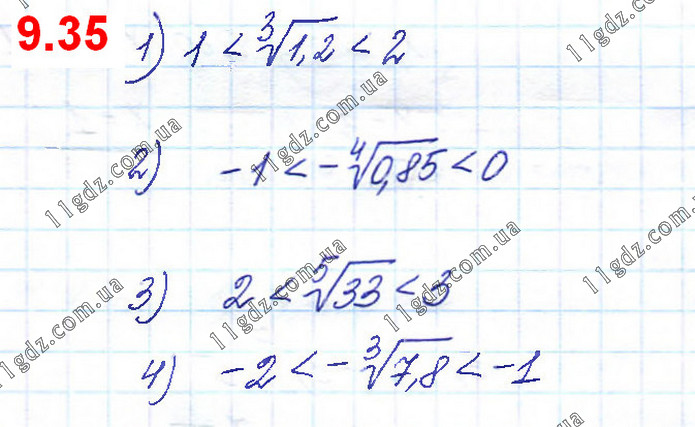 9.35
1) 1 < ∛1,2 < 2
2) -1 < -∜0,85 < 0
3) 2 < ⁵√33 < 3
4) -2 < -∛7,8 < -1
11gdz.com.ua
11gdz.com.ua
11gdz.com.ua
11gdz.com.ua
11gdz.com.ua
11gdz.com.ua
11gdz.com.ua